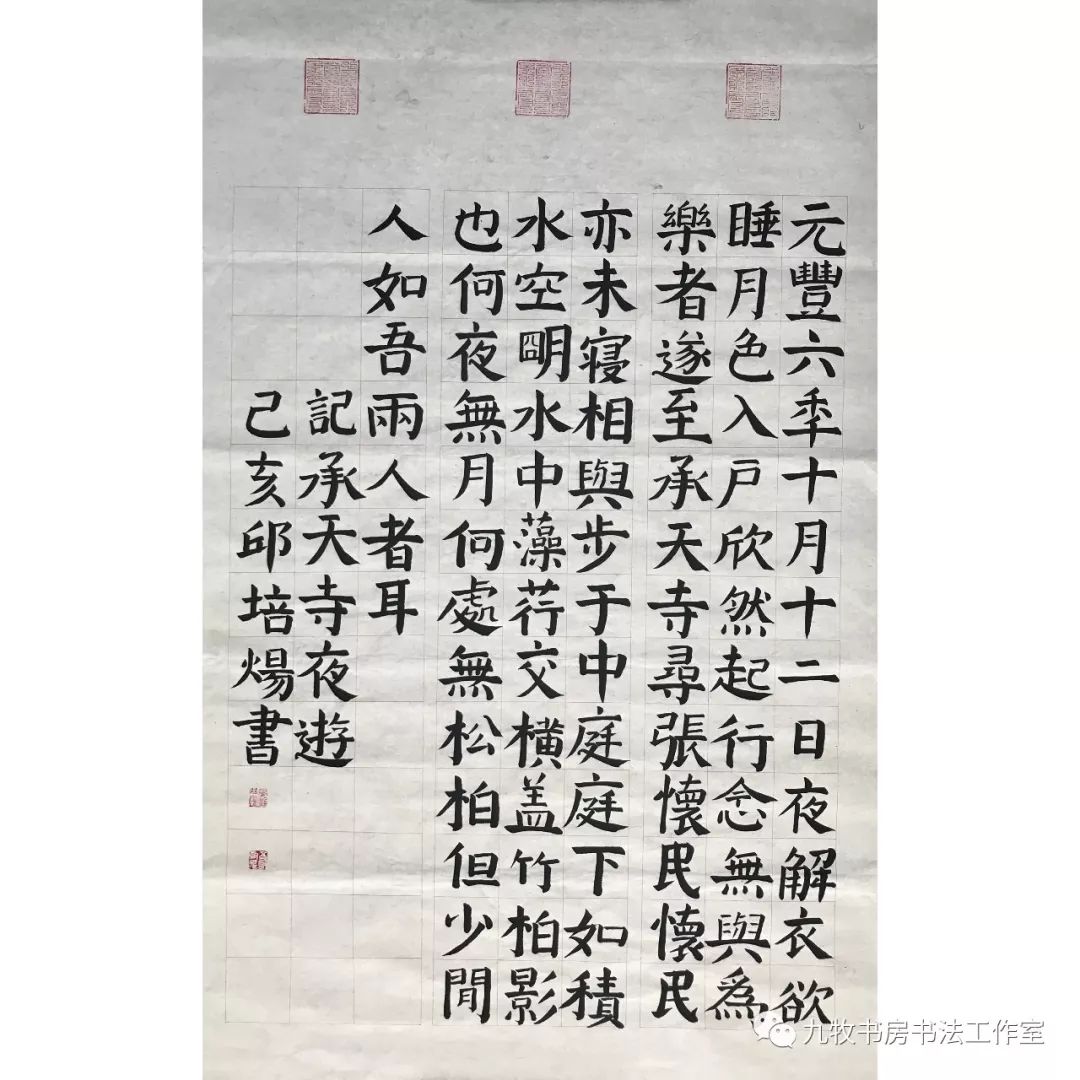 元豐六秊十月十二日夜解衣欲
睡月色入戶欣然起行念無與爲
樂者遂至承天寺尋張懷民懷民
亦未寝相與步于中庭庭下如積
水空朙水中藻荇交橫盖竹柏影
也何夜無月何處無松柏但少閒
人如吾兩人者耳
記承天寺夜遊
己亥邱培煬書
九牧书房书法工作室